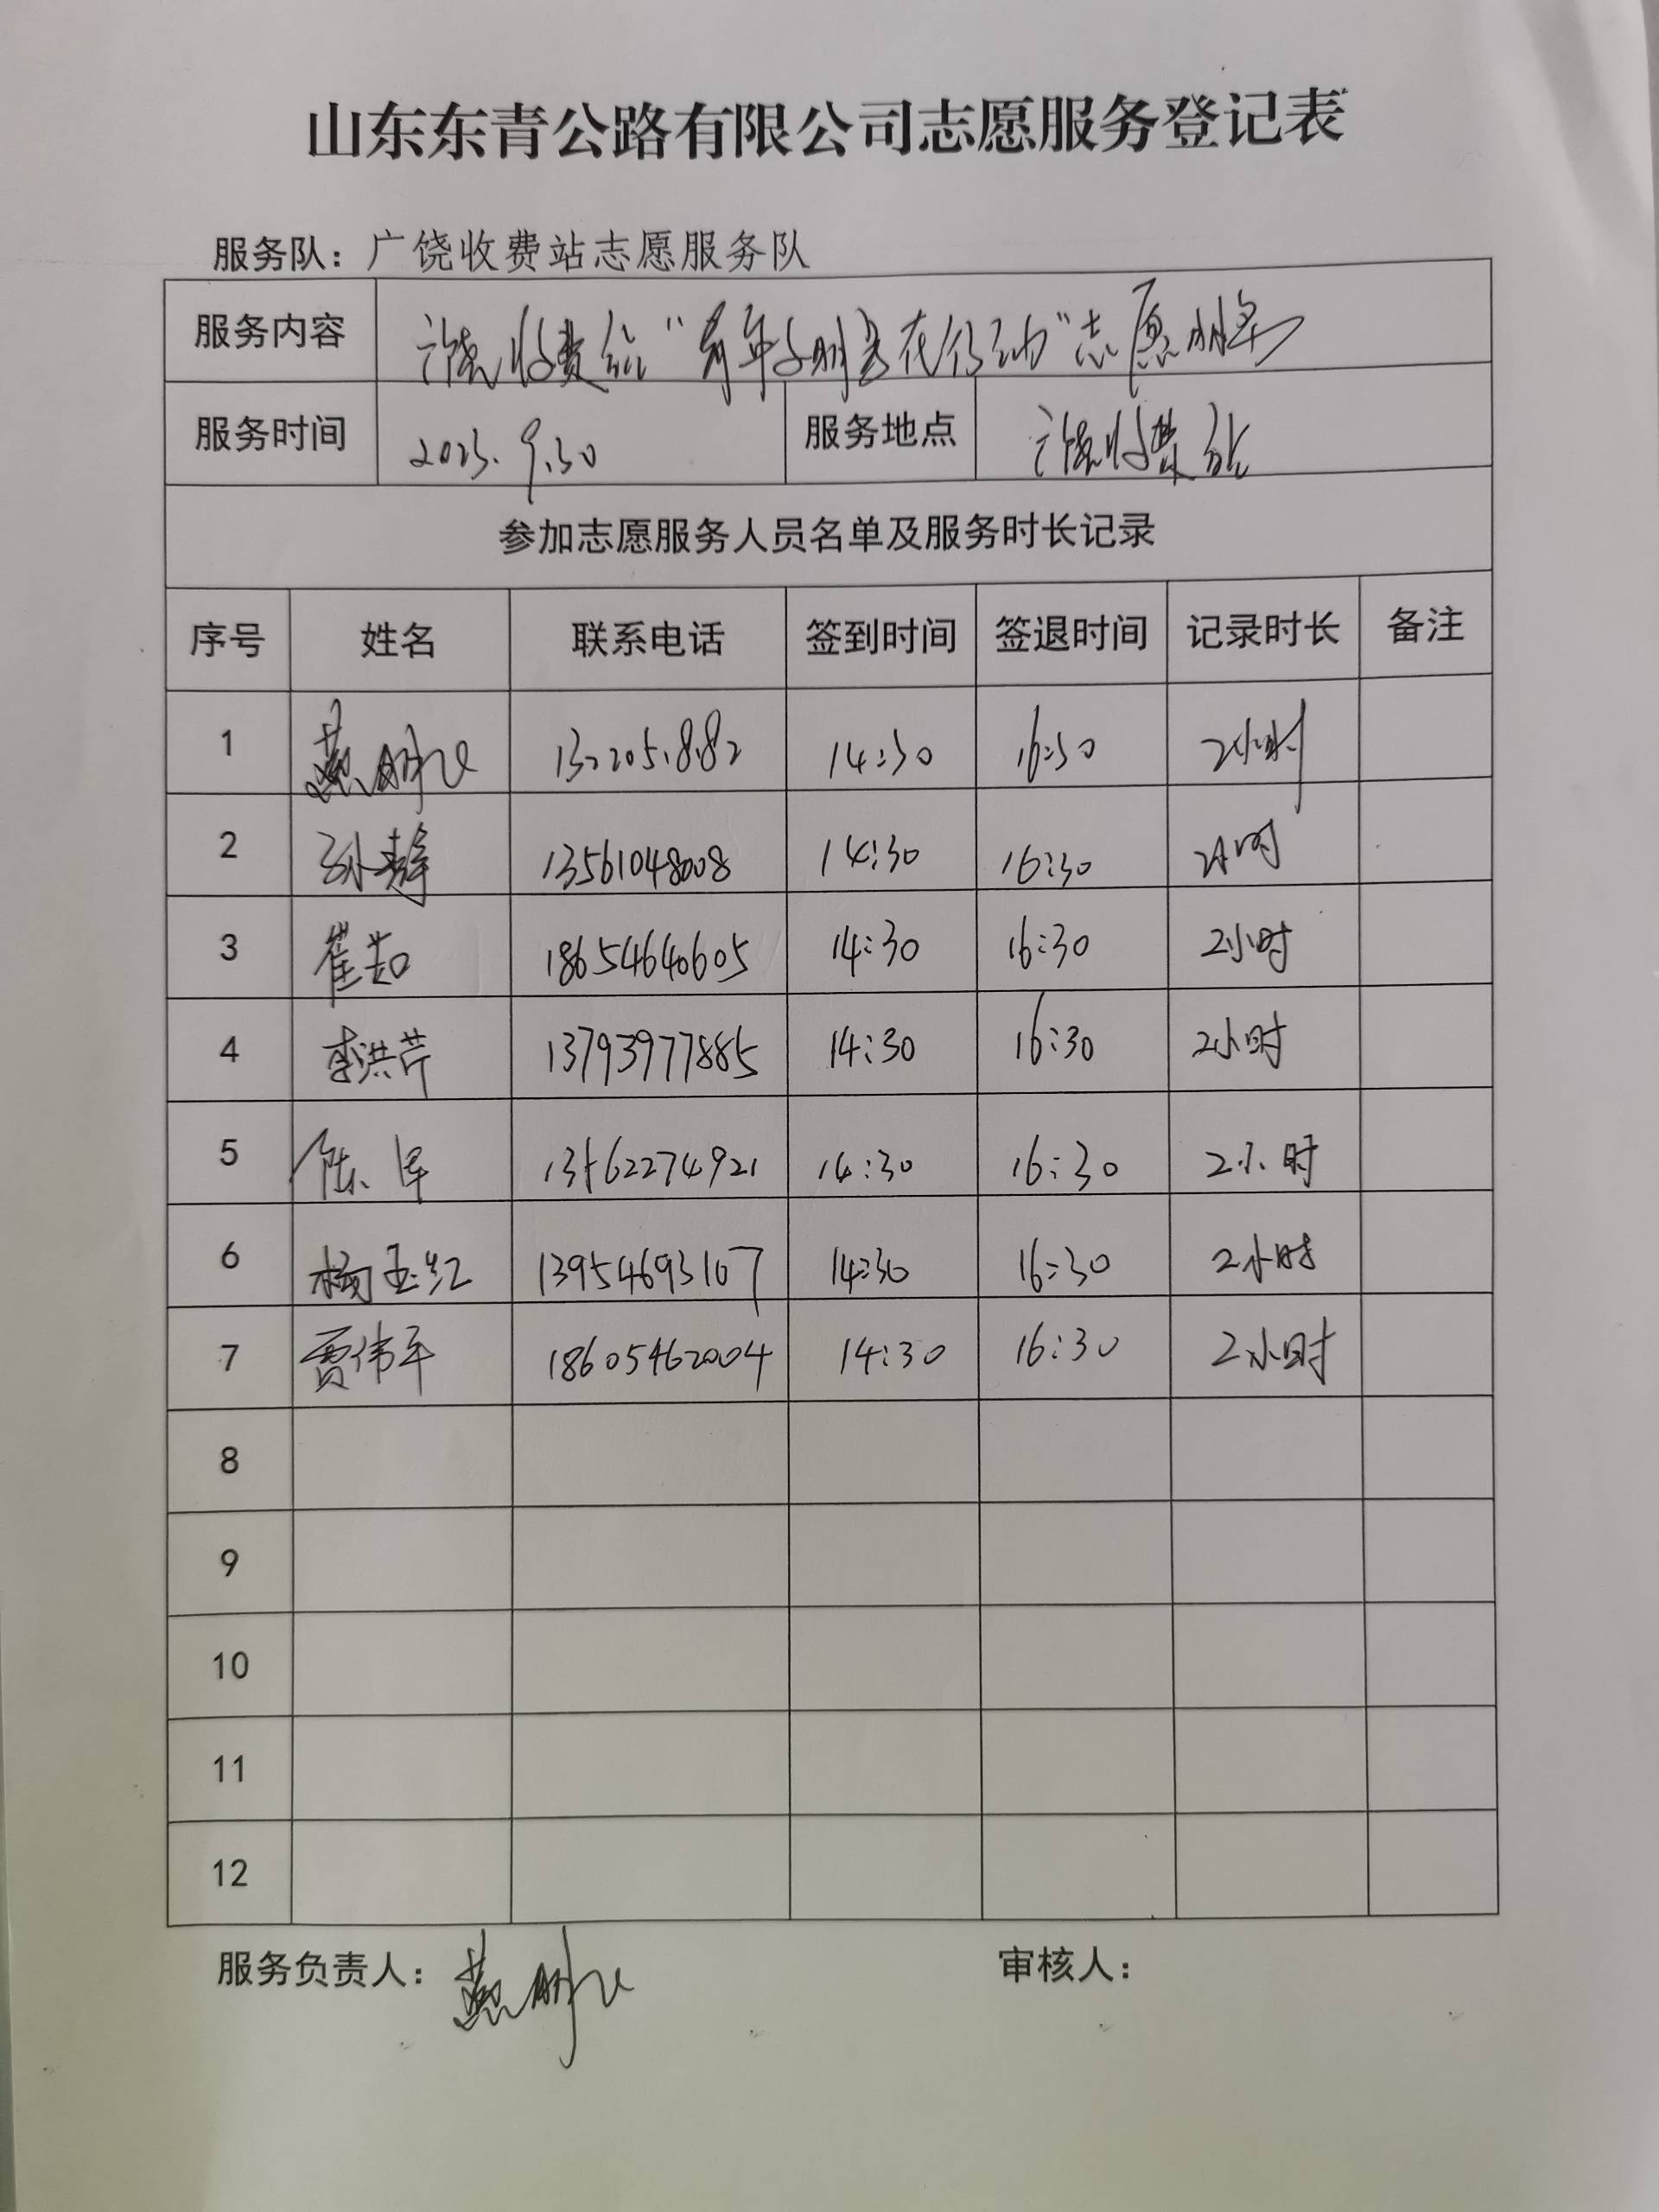 山东东青公路有限公司志愿服务登记表
服务队：广饶收费站志愿服务队
服务内容 广饶收费站“青年文明号在行动”志愿服务
服务时间 2023.9.30 服务地点 广饶收费站
参加志愿服务人员名单及服务时长记录
序号 姓名 联系电话 签到时间 签退时间 记录时长 备注
1 14:30 16:30 2小时
2 孙静 13561048008 14:30 16:30 2小时
3 崔茹 18654640605 14:30 16:30 2小时
4 李洪芹 13793977885 14:30 16:30 2小时
5 陈军 13562274921 14:30 16:30 2小时
6 杨玉红 13954693107 14:30 16:30 2小时
7 贾伟平 18605462004 14:30 16:30 2小时
8
9
10
11
12
服务负责人： 审核人：